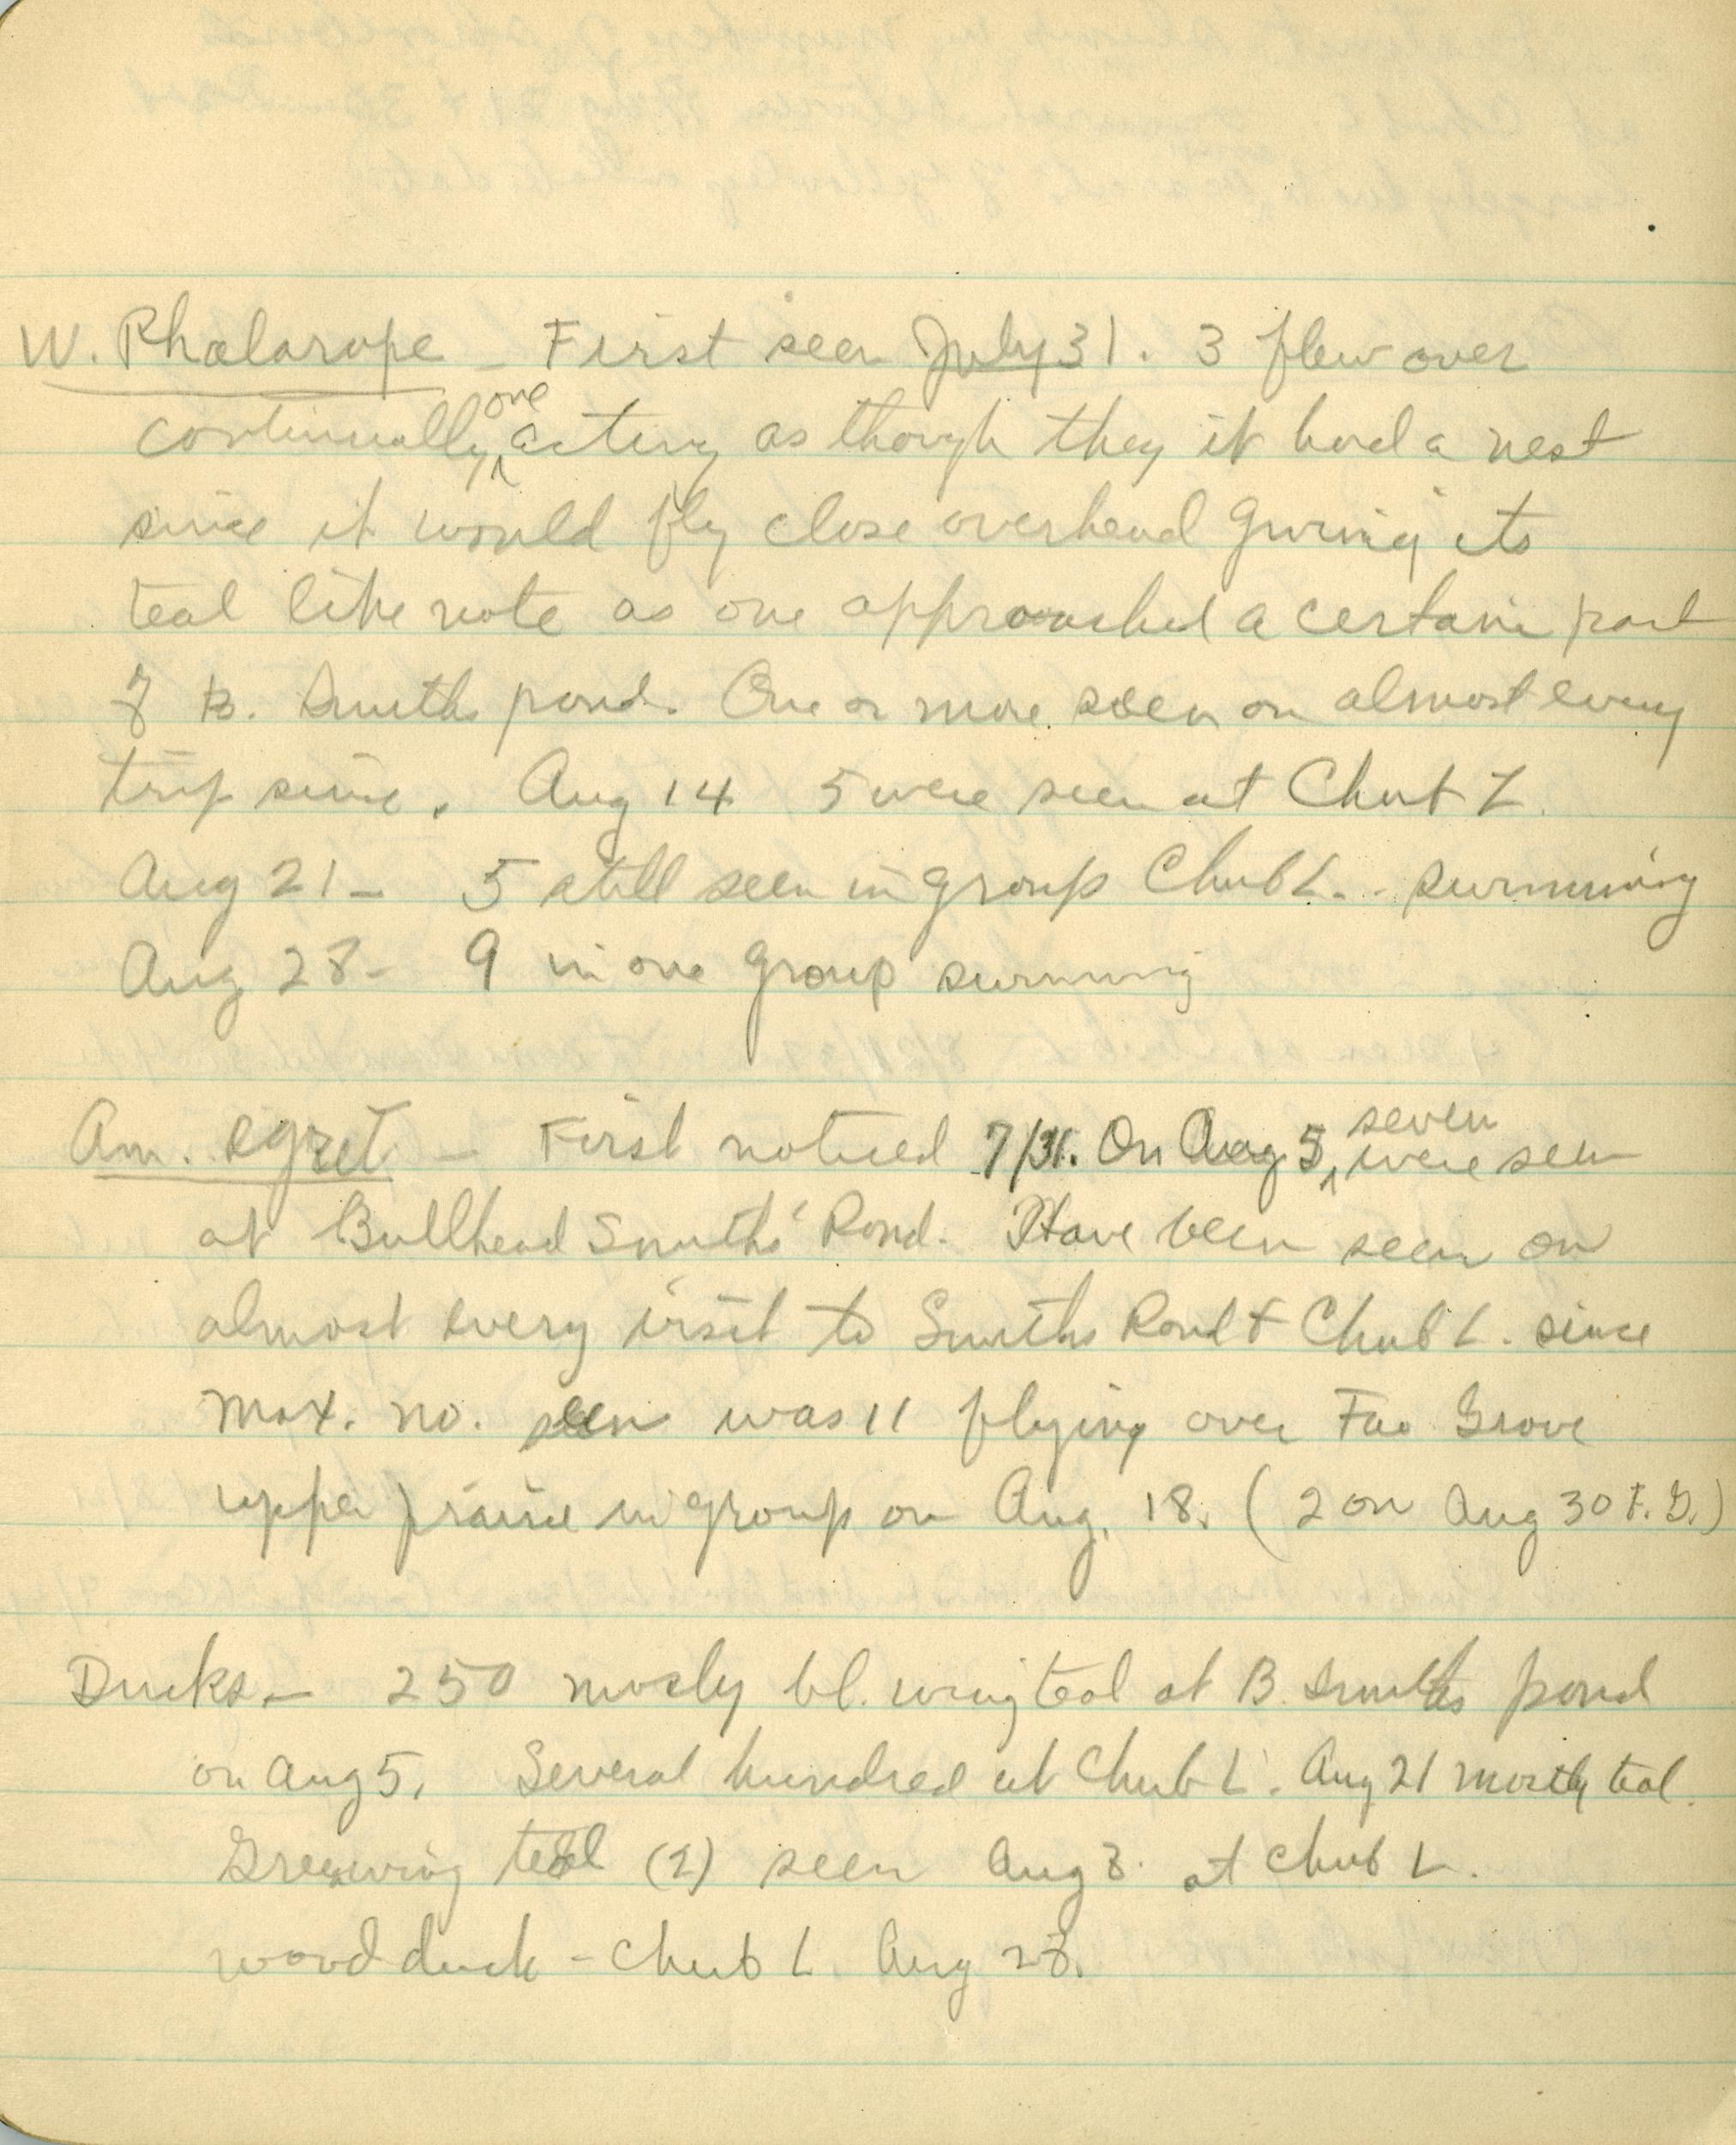 W. Phalarope - First seen July 31. 3 flew over
continually, one acting as though they it had a nest
since it would fly close overhead giving its
teal like note as one approached a certain part
of B. Smiths pond. One or more seen on almost every
trip since. Aug 14 5 were seen at Chub L.
Aug 21 - 5 still seen in group Chub L. - swimming
Aug 28 - 9 in one group swimming
Am. Egret - First noticed 7/31. On Aug 5, seven were seen
at Bullhead Smiths' Pond. Have been seen on
almost every visit to Smiths Pond & Chub L. since
Max. no. seen was 11 flying over Fao Grove
upper prairie in group on Aug. 18. (2 on Aug 30 F. G.)
Ducks - 250 mosly bl. wing teal at B. Smiths pond
on Aug 5. Several hundred at Chub L. Aug 21 mostly teal.
Greenwing teal (2) seen Aug 8. at Chub L.
wood duck - Chub L. Aug 28.